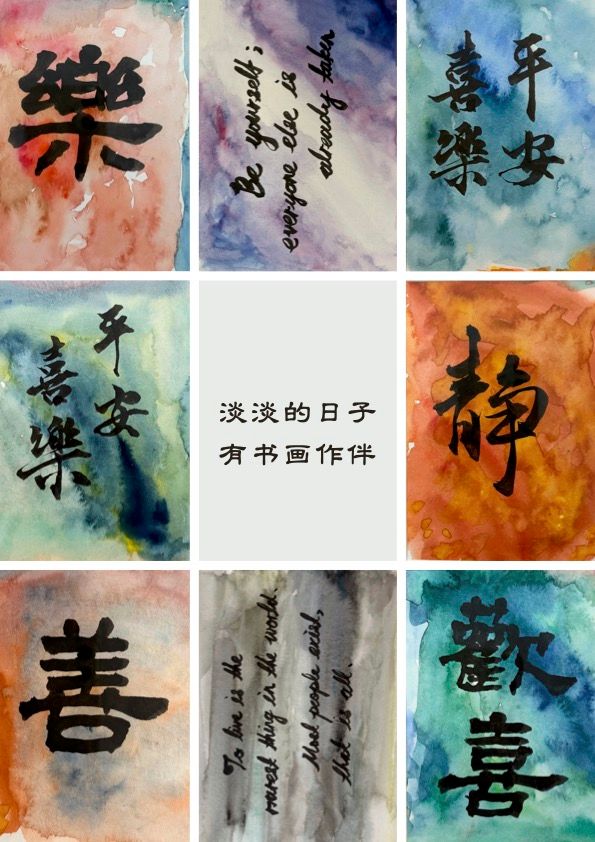 樂
Be yourself;
everyone else is
already taken
平安
喜樂
平安
喜樂
淡淡的日子
有书画作伴
靜
善
To live is the
rarest thing in the world.
Most people exist,
that is all.
歡喜